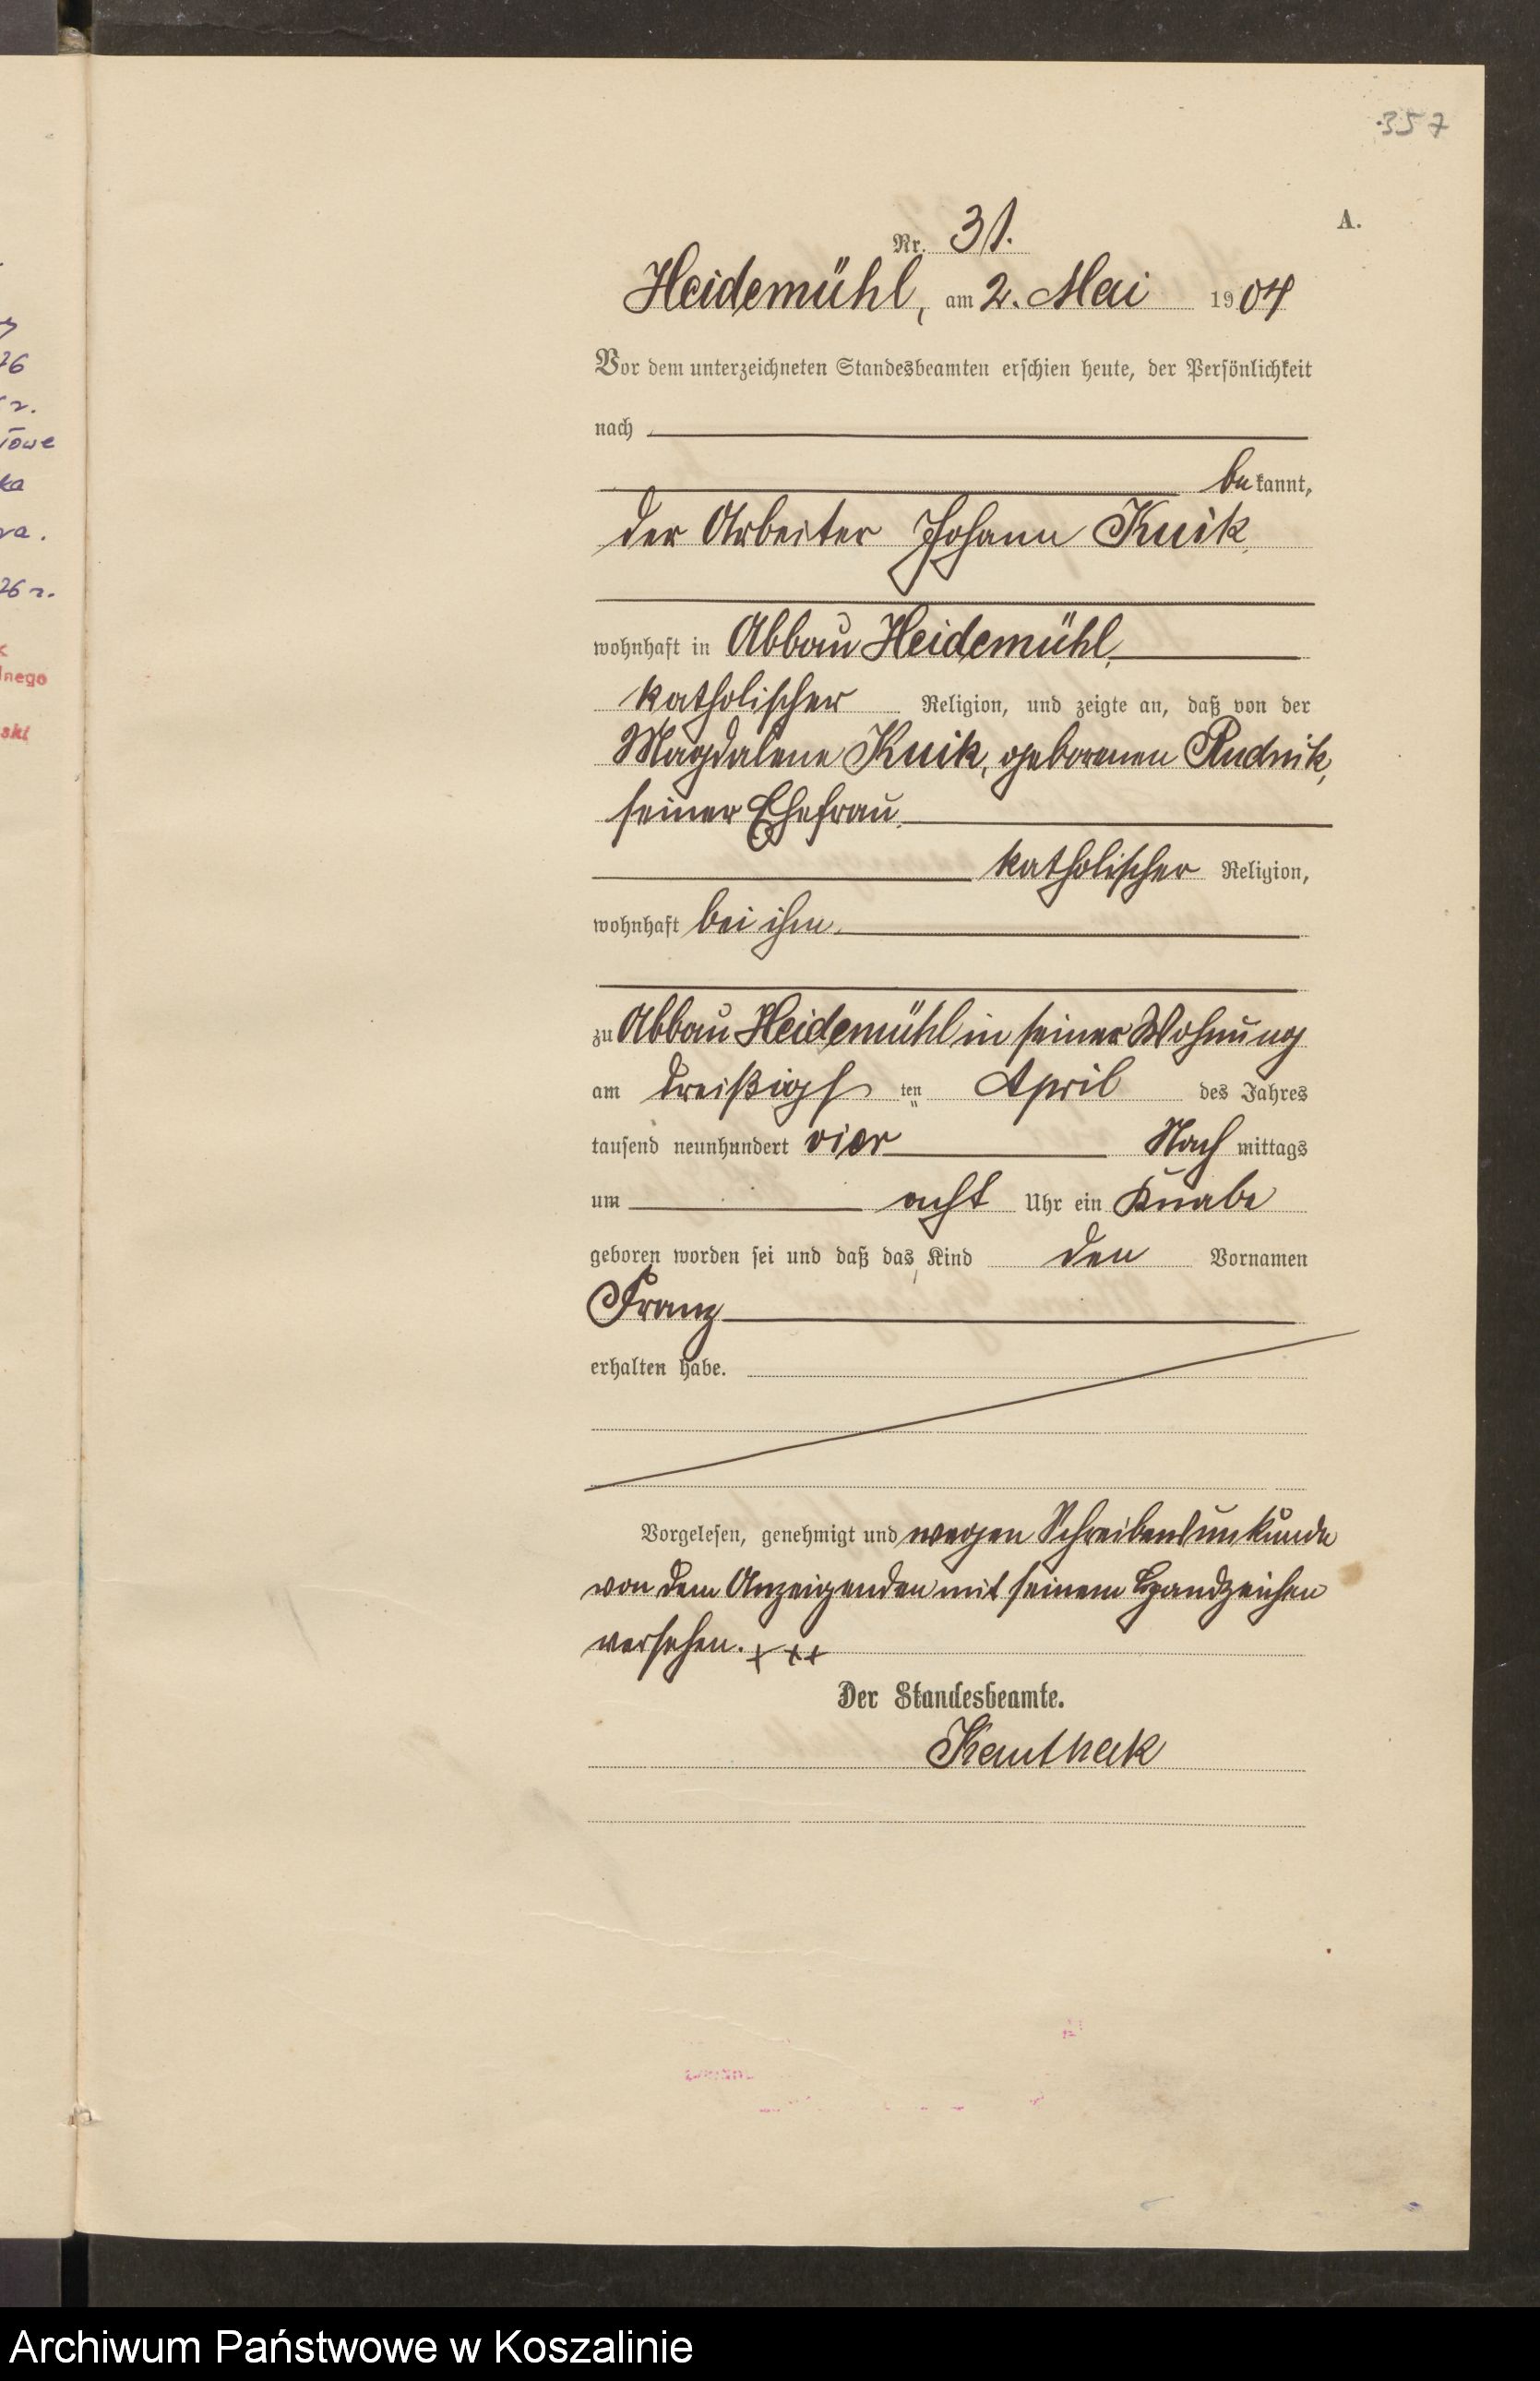 76
r.
ka
26 r.
nego
ski
357
A.
Nr. 31.
Heidemühl, am 2. Mai 1904
Vor dem unterzeichneten Standesbeamten erschien heute, der Persönlichkeit
nach
bekannt,
der Arbeiter Johann Kuik
wohnhaft in Abbau Heidemühl,
katholischer Religion, und zeigte an, daß von der
Magdalene Kuik, geborenen Rudnik,
seiner Ehefrau,
katholischer Religion,
wohnhaft bei ihm,
zu Abbau Heidemühl in seiner Wohnung
am dreißigsten April des Jahres
tausend neunhundert vier Nachmittags
um acht Uhr ein Knabe
geboren worden sei und daß das Kind den Vornamen
Franz
erhalten habe.
Vorgelesen, genehmigt und wegen Schreibensunkunde
von dem Anzeigenden mit seinem Handzeichen
versehen. + ++
Der Standesbeamte.
Kauthack
Archiwum Państwowe w Koszalinie